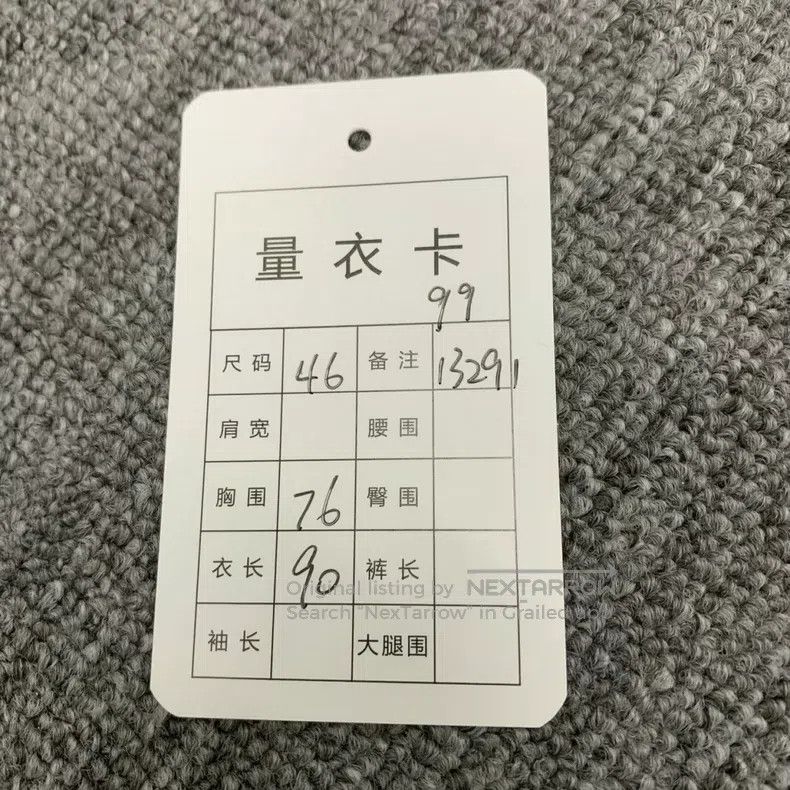 量衣卡
99
尺码 46 备注 13291
肩宽 腰围
胸围 76 臀围
衣长 90 裤长
Original listing by NEXTARROW
Search "NexTarrow" in Grailed
袖长 大腿围